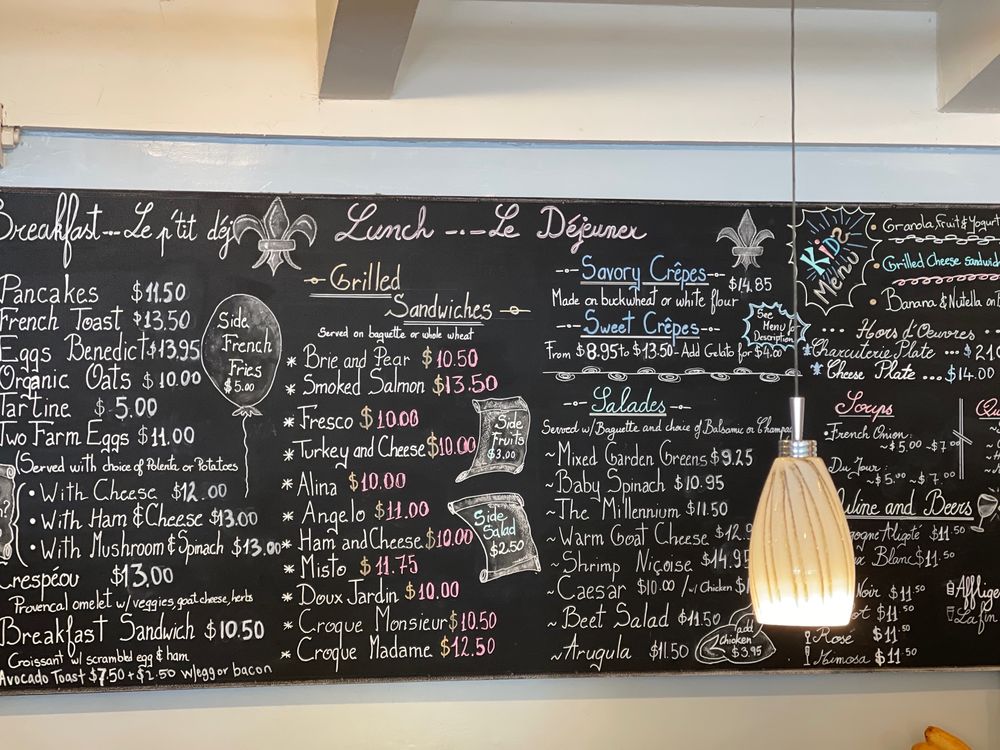 Breakfast -- Le p'tit déj
Pancakes $11.50
French Toast $13.50
Eggs Benedict $13.95
Organic Oats $10.00
Tartine $5.00
Two Farm Eggs $11.00
(Served with choice of Polenta or Potatoes
• With Cheese $12.00
• With Ham & Cheese $13.00
• With Mushroom & Spinach $13.00
Crespéou $13.00
Provencal omelet w/veggies, goat cheese, herbs
Breakfast Sandwich $10.50
Croissant w/ scrambled egg & ham
Avocado Toast $7.50 + $2.50 w/egg or bacon
Side
French
Fries
$5.00
Lunch -.- Le Déjeuner
Grilled
Sandwiches
Served on baguette or whole wheat
* Brie and Pear $10.50
* Smoked Salmon $13.50
* Fresco $10.00
* Turkey and Cheese $10.00
* Alina $10.00
* Angelo $11.00
* Ham and Cheese $10.00
* Misto $11.75
* Doux Jardin $10.00
* Croque Monsieur $10.50
* Croque Madame $12.50
Side
Fruits
$3.00
Side
Salad
$2.50
Savory Crêpes $14.85
Made on buckwheat or white flour
Sweet Crêpes
From $8.95 to $13.50 - Add Gelato for $4.00
See
Menu
Description
Salades
Served w/Baguette and choice of Balsamic or Champa
~ Mixed Garden Greens $9.25
~ Baby Spinach $10.95
~ The Millennium $11.50
~ Warm Goat Cheese $12.9
~ Shrimp Niçoise $14.95
~ Caesar $10.00 /w/ Chicken $1
~ Beet Salad $11.50
~ Arugula $11.50
add
Chicken
$3.95
Kids
Menu
• Granola Fruit & Yogurt
• Grilled Cheese Sandwich
• Banana & Nutella on
Hors d'Oeuvres
Charcuterie Plate ... $21.0
Cheese Plate ... $14.00
Soups
• French Onion
~$5.00 ~$7.0
Du Jour:
~$5.00 ~$7.00
Qu
Wine and Beers
gogne Aligoté $11.50
Blanc $11.50
Noir $11.50
ot $11.50
Rosé $11.50
Mimosa $11.50
Afflige
La fin